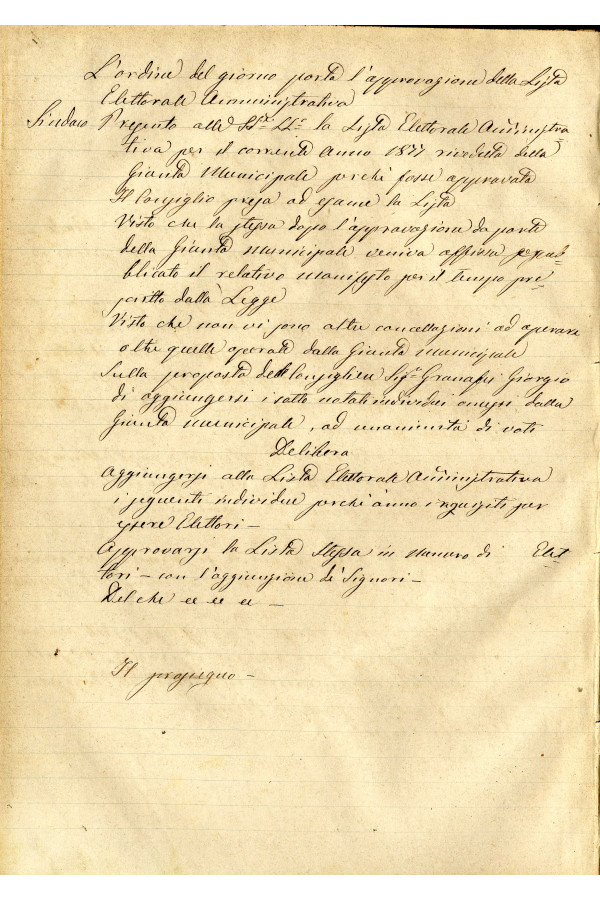 L'ordine del giorno porta l'approvazione della Lista
Elettorale Amministrativa
Sindaco Presento alle SS.e LL.e la Lista Elettorale Amministra-
tiva per il corrente Anno 1877 riveduta dalla
Giunta Municipale perchè fosse approvata
Il Consiglio presa ad esame la Lista
Visto che la stessa dopo l'approvazione da parte
della Giunta Municipale veniva affissa e pub-
blicato il relativo manifesto per il tempo pre-
scritto dalla Legge
Visto che non vi sono altre cancellazioni ad operare
oltre quelle operate dalla Giunta Municipale
Sulla proposta del Consigliere Sig.r Granafei Giorgio
di aggiungersi i sotto notati individui omessi dalla
Giunta Municipale, ad unanimità di voti
Delibera
Aggiungersi alla Lista Elettorale Amministrativa
i seguenti individui perchè ànno i requisiti per
essere Elettori –
Approvarsi la Lista stessa in numero di Elet-
tori – con l'aggiunzione de' Signori –
Del che
Il